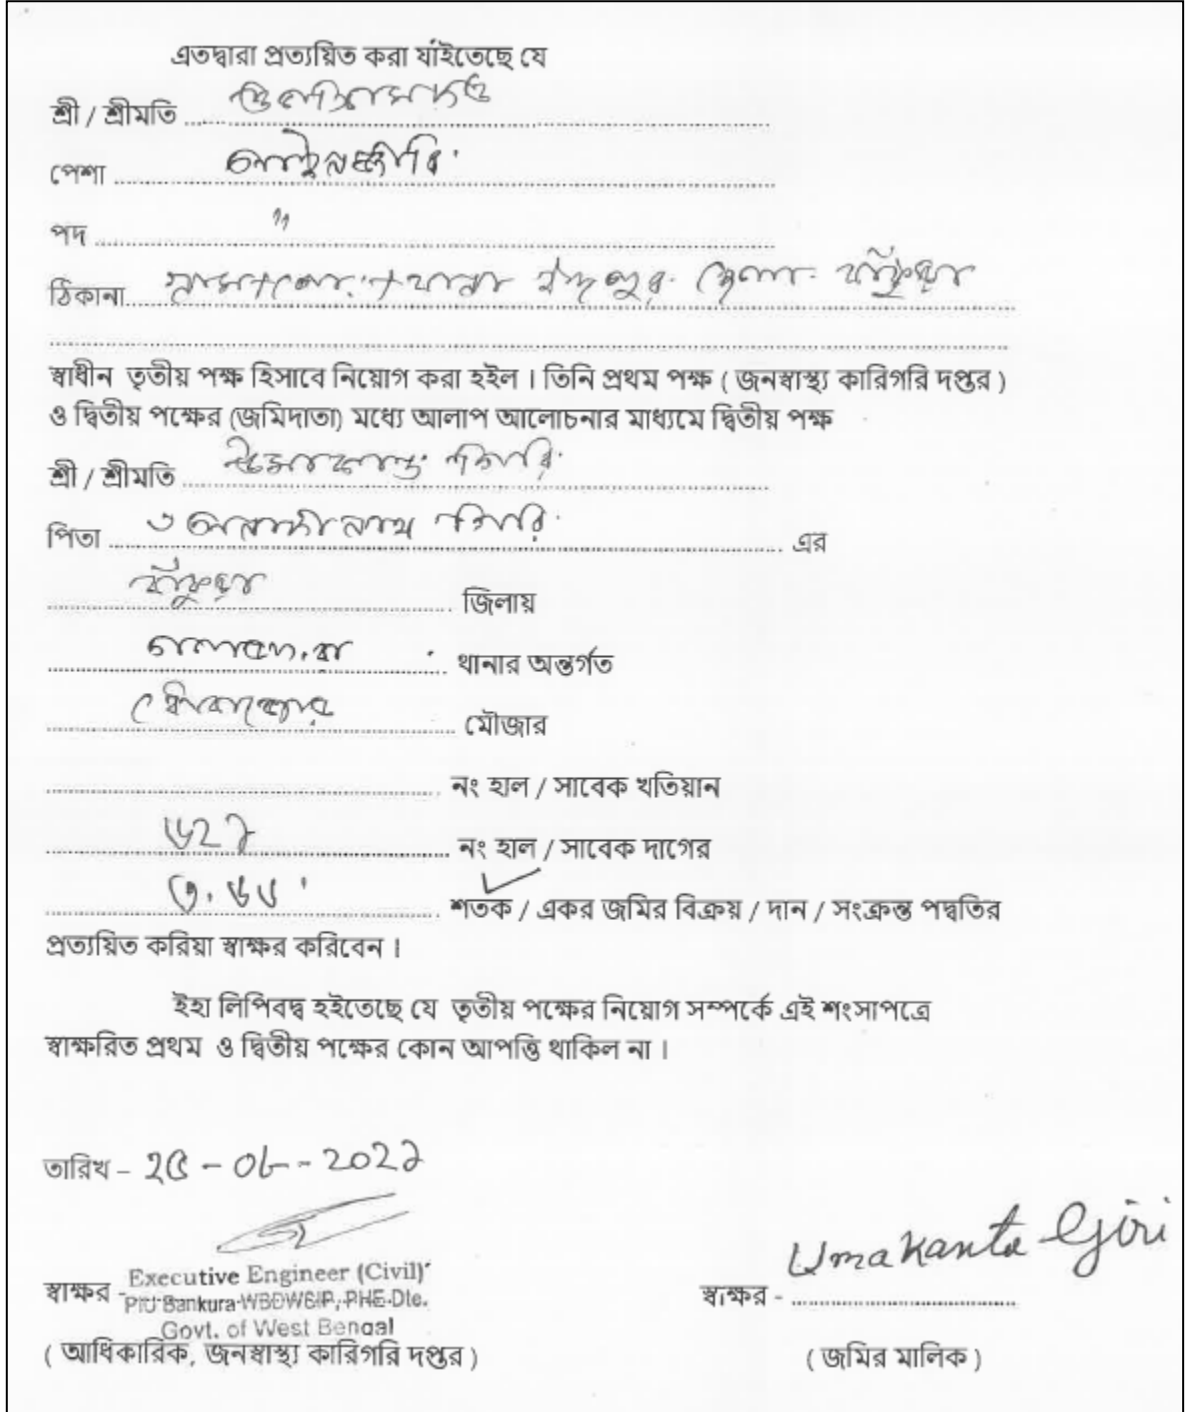 এতদ্বারা প্রত্যয়িত করা যাঁইতেছে যে
শ্রী / শ্রীমতি
পেশা
পদ "
ঠিকানা গ্রাম+পো:+থানা ইন্দপুর. জেলা- বাঁকুড়া
স্বাধীন তৃতীয় পক্ষ হিসাবে নিয়োগ করা হইল । তিনি প্রথম পক্ষ ( জনস্বাস্থ্য কারিগরি দপ্তর )
ও দ্বিতীয় পক্ষের (জমিদাতা) মধ্যে আলাপ আলোচনার মাধ্যমে দ্বিতীয় পক্ষ
শ্রী / শ্রীমতি উমাকান্ত গিরি
পিতা অনাদীনাথ গিরি এর
বাঁকুড়া জিলায়
থানার অন্তর্গত
মৌজার
নং হাল / সাবেক খতিয়ান
৬২১ নং হাল / সাবেক দাগের
৩.৬৬ শতক / একর জমির বিক্রয় / দান / সংক্রন্ত পদ্বতির
প্রত্যয়িত করিয়া স্বাক্ষর করিবেন ।
ইহা লিপিবদ্ব হইতেছে যে তৃতীয় পক্ষের নিয়োগ সম্পর্কে এই শংসাপত্রে
স্বাক্ষরিত প্রথম ও দ্বিতীয় পক্ষের কোন আপত্তি থাকিল না ।
তারিখ –
স্বাক্ষর - Executive Engineer (Civil)
PIU Bankura-WBDWSIP, PHE Dte.
Govt. of West Bengal
( আধিকারিক, জনস্বাস্থ্য কারিগরি দপ্তর )
Umakanta Giri
স্বাক্ষর -
( জমির মালিক )